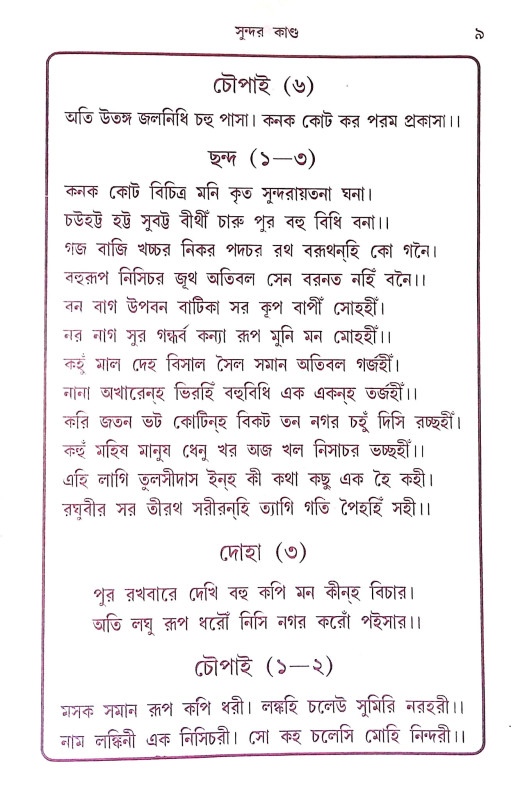 সুন্দর কাণ্ড ৯
চৌপাই (৬)
অতি উতঙ্গ জলনিধি চহু পাসা। কনক কোট কর পরম প্রকাসা।।
ছন্দ (১—৩)
কনক কোট বিচিত্র মনি কৃত সুন্দরায়তনা ঘনা।
চউহট্ট হট্ট সুবট্ট বীথীঁ চারু পুর বহু বিধি বনা।।
গজ বাজি খচ্চর নিকর পদচর রথ বরূথন্‌হি কো গনৈ।
বহুরূপ নিসিচর জূথ অতিবল সেন বরনত নহিঁ বনৈ।।
বন বাগ উপবন বাটিকা সর কূপ বাপীঁ সোহহীঁ।
নর নাগ সুর গন্ধর্ব কন্যা রূপ মুনি মন মোহহীঁ।।
কহুঁ মাল দেহ বিসাল সৈল সমান অতিবল গর্জহীঁ।
নানা অখারেন্‌হ ভিরহিঁ বহুবিধি এক একন্‌হ তর্জহীঁ।।
করি জতন ভট কোটিন্‌হ বিকট তন নগর চহুঁ দিসি রচ্ছহীঁ।
কহুঁ মহিষ মানুষ ধেনু খর অজ খল নিসাচর ভচ্ছহীঁ।।
এহি লাগি তুলসীদাস ইন্‌হ কী কথা কছু এক হৈ কহী।
রঘুবীর সর তীরথ সরীরন্‌হি ত্যাগি গতি পৈহহিঁ সহী।।
দোহা (৩)
পুর রখবারে দেখি বহু কপি মন কীন্‌হ বিচার।
অতি লঘু রূপ ধরৌঁ নিসি নগর করৌঁ পইসার।।
চৌপাই (১—২)
মসক সমান রূপ কপি ধরী। লঙ্কহি চলেউ সুমিরি নরহরী।।
নাম লঙ্কিনী এক নিসিচরী। সো কহ চলেসি মোহি নিন্দরী।।